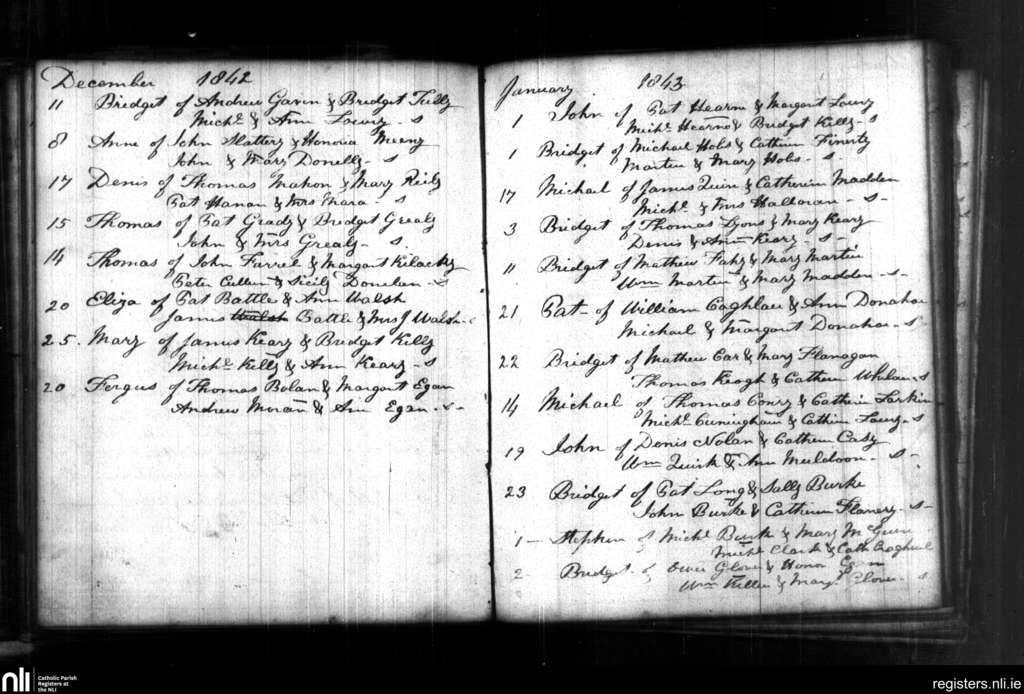 December 1842
11 Bridget of Andrew Gavin & Bridget Tully
Michl & Ann Lowry - s
8 Anne of John Slattery & Honoria
John & Mary Donelly - s
17 Denis of Thomas Mahon & Mary Reily
Pat Hanan & Mrs Mara - s
15 Thomas of Pat Grady & Bridget Grealy
John & Mrs Grealy - s
14 Thomas of John Farrel & Margaret Kilacky
Peter Cullen & Sicily Donelan - s
20 Eliza of Pat Battle & Ann Walsh
James Walsh Battle & Mrs J Walsh - s
25. Mary of James Keary & Bridget Killy
Michl Killy & Ann Keary - s
20 Fergus of Thomas Bolan & Margaret Egan
Andrew Moran & Ann Egan - s -
January 1843
1 John of Pat Hearn & Margaret Lowry
Michl Hearn & Bridget Killy - s
1 Bridget of Michael Hobs & Cathern Finerty
Martin & Mary Hobs - s
17 Michael of James Quin & Catherin Madden
Michl & Mrs Halloran - s -
3 Bridget of Thomas Lyons & Mary Keary
Denis & Ann Keary - s -
11 Bridget of Mathew Fahy & Mary Martin
Wm Martin & Mary Madden - s -
21 Pat - of William Coghlan & Ann Donahoe
Michael & Margaret Donahoe - s
22 Bridget of Mathew Ear & Mary Flanagan
Thomas Keogh & Cathern Whelan - s
14 Michael of Thomas Conry & Cathern Larkin
Michl Cuningham & Cathern Lowry - s
19 John of Denis Nolan & Cathern Casy
Wm Quirk & Ann Muldoon - s -
23 Bridget of Pat Long & Sally Burke
John Burke & Cathern Flanery - s -
1 - Stephen of Michl Burke & Mary McGuin
Michl Clark & Cath
2 Bridget of Owen Glover & Honor Egan
Wm & Margt Glover - s
nli
Catholic Parish
Registers at
the NLI
registers.nli.ie